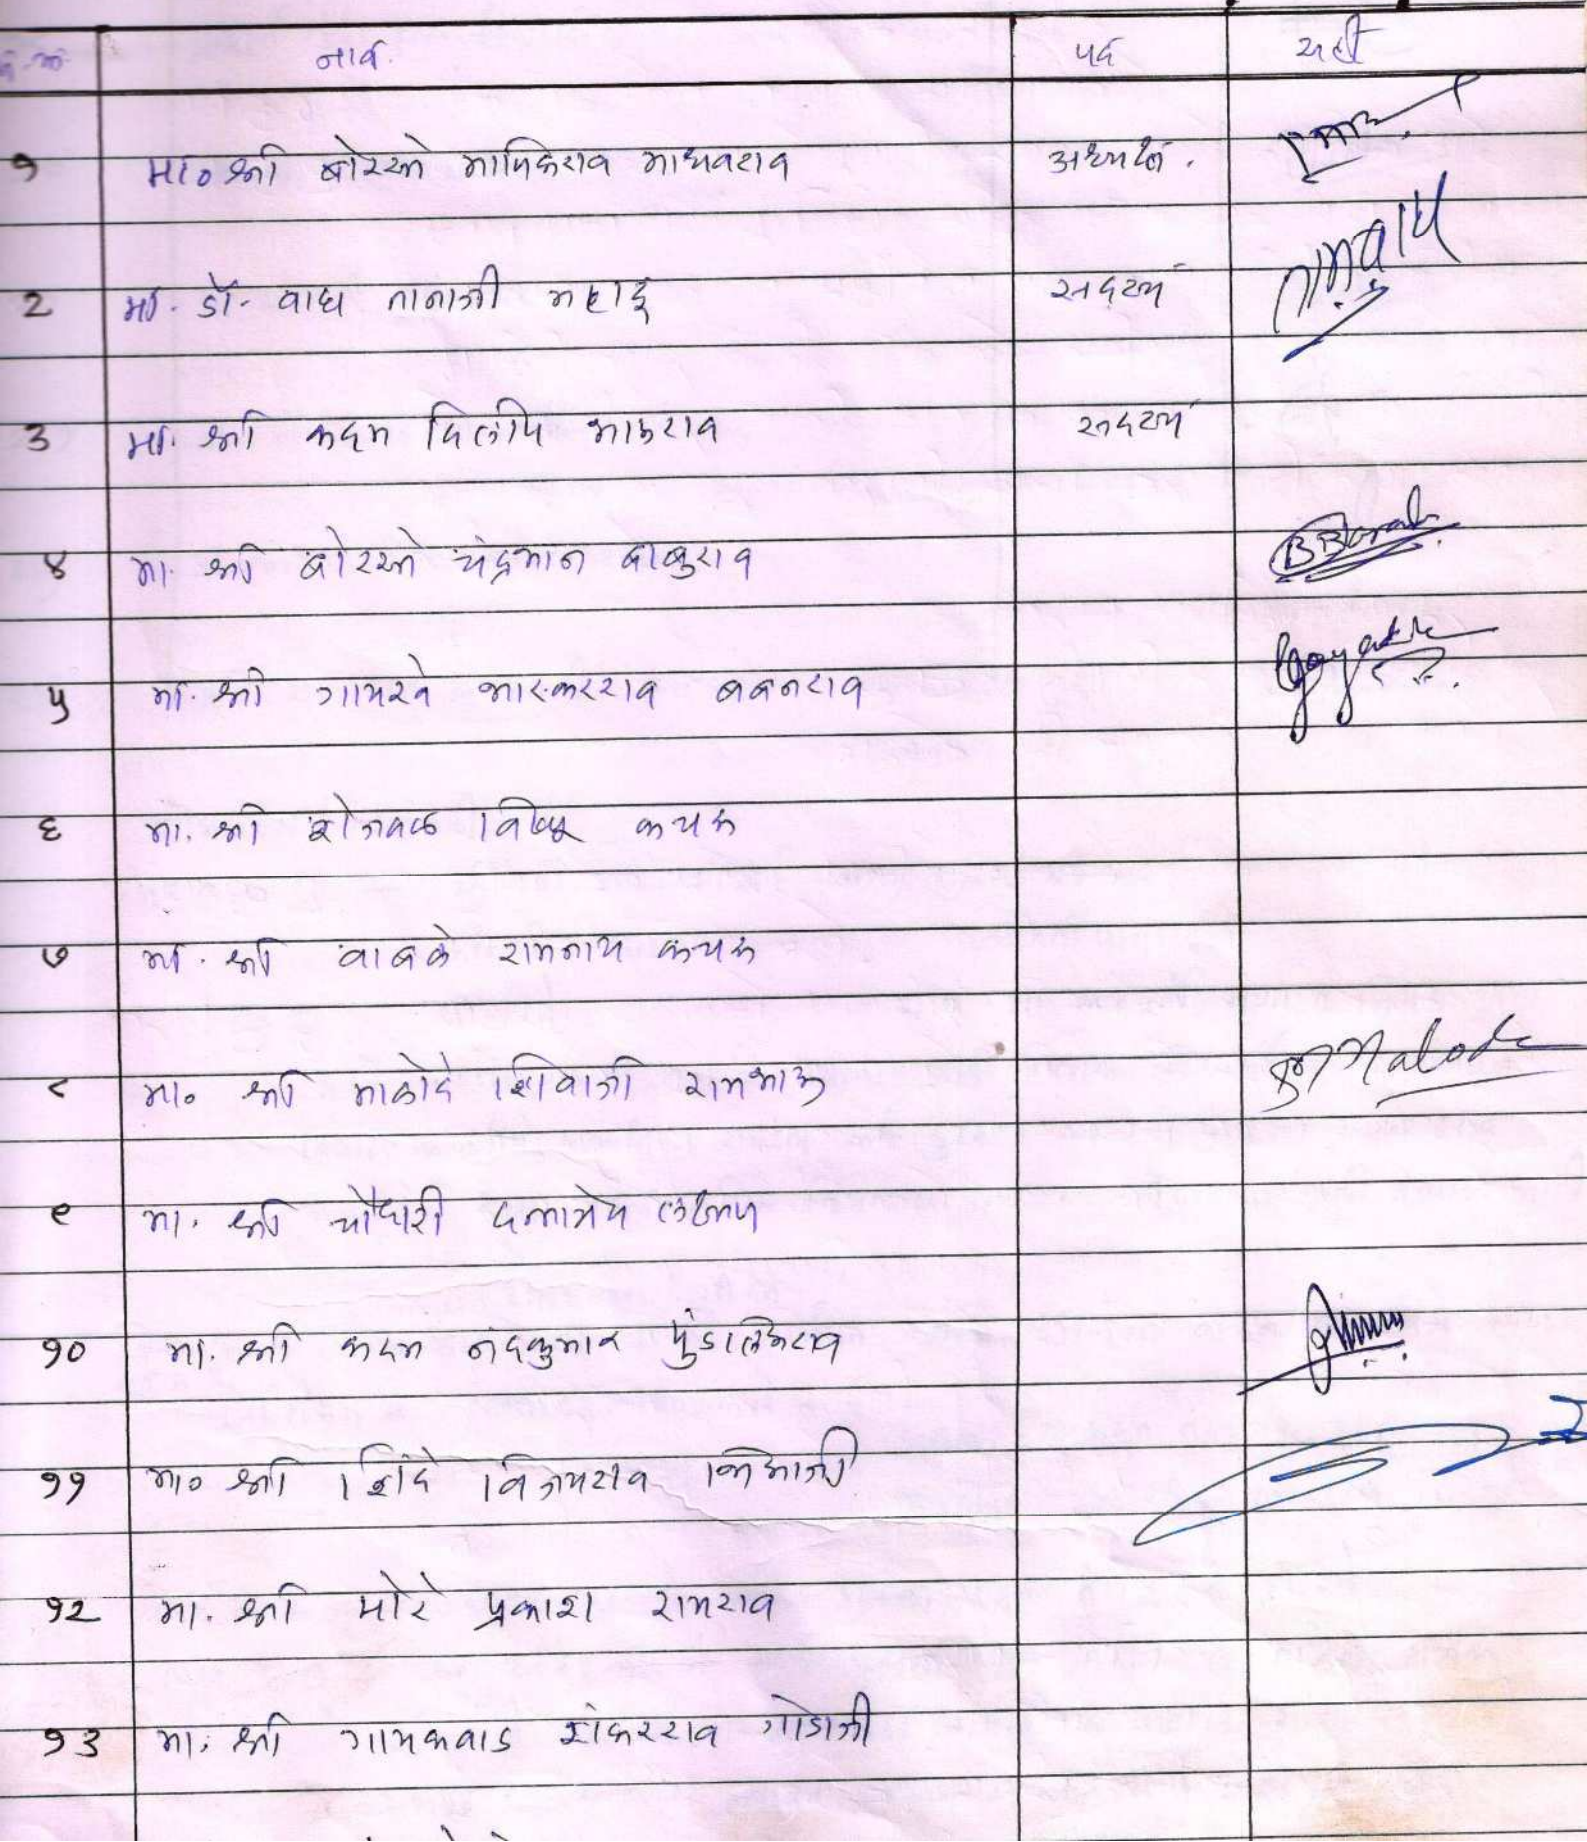 नाव पद सही
१ मा० श्री बोरस्ते माणिकराव माधवराव अध्यक्ष.
२ मा. डॉ. वाघ तानाजी महादू सदस्य
३ मा. श्री कदम दिलीप भाऊराव सदस्य
४ मा. श्री बोरस्ते चंद्रभान बाबुराव
५ मा. श्री गायखे भास्करराव बबनराव
६ मा. श्री शेजवळ विष्णू कचरू
७ मा. श्री वाबळे रामनाथ कचरू
८ मा० श्री मालोदे शिवाजी रामभाऊ Malode
९ मा. श्री चौधरी दत्तात्रेय लक्ष्मण
१० मा. श्री कदम नंदकुमार पुंडलिकराव
११ मा० श्री शिंदे विजयराव
१२ मा. श्री मोरे प्रकाश रामराव
१३ मा. श्री गायकवाड शंकरराव गोडाजी